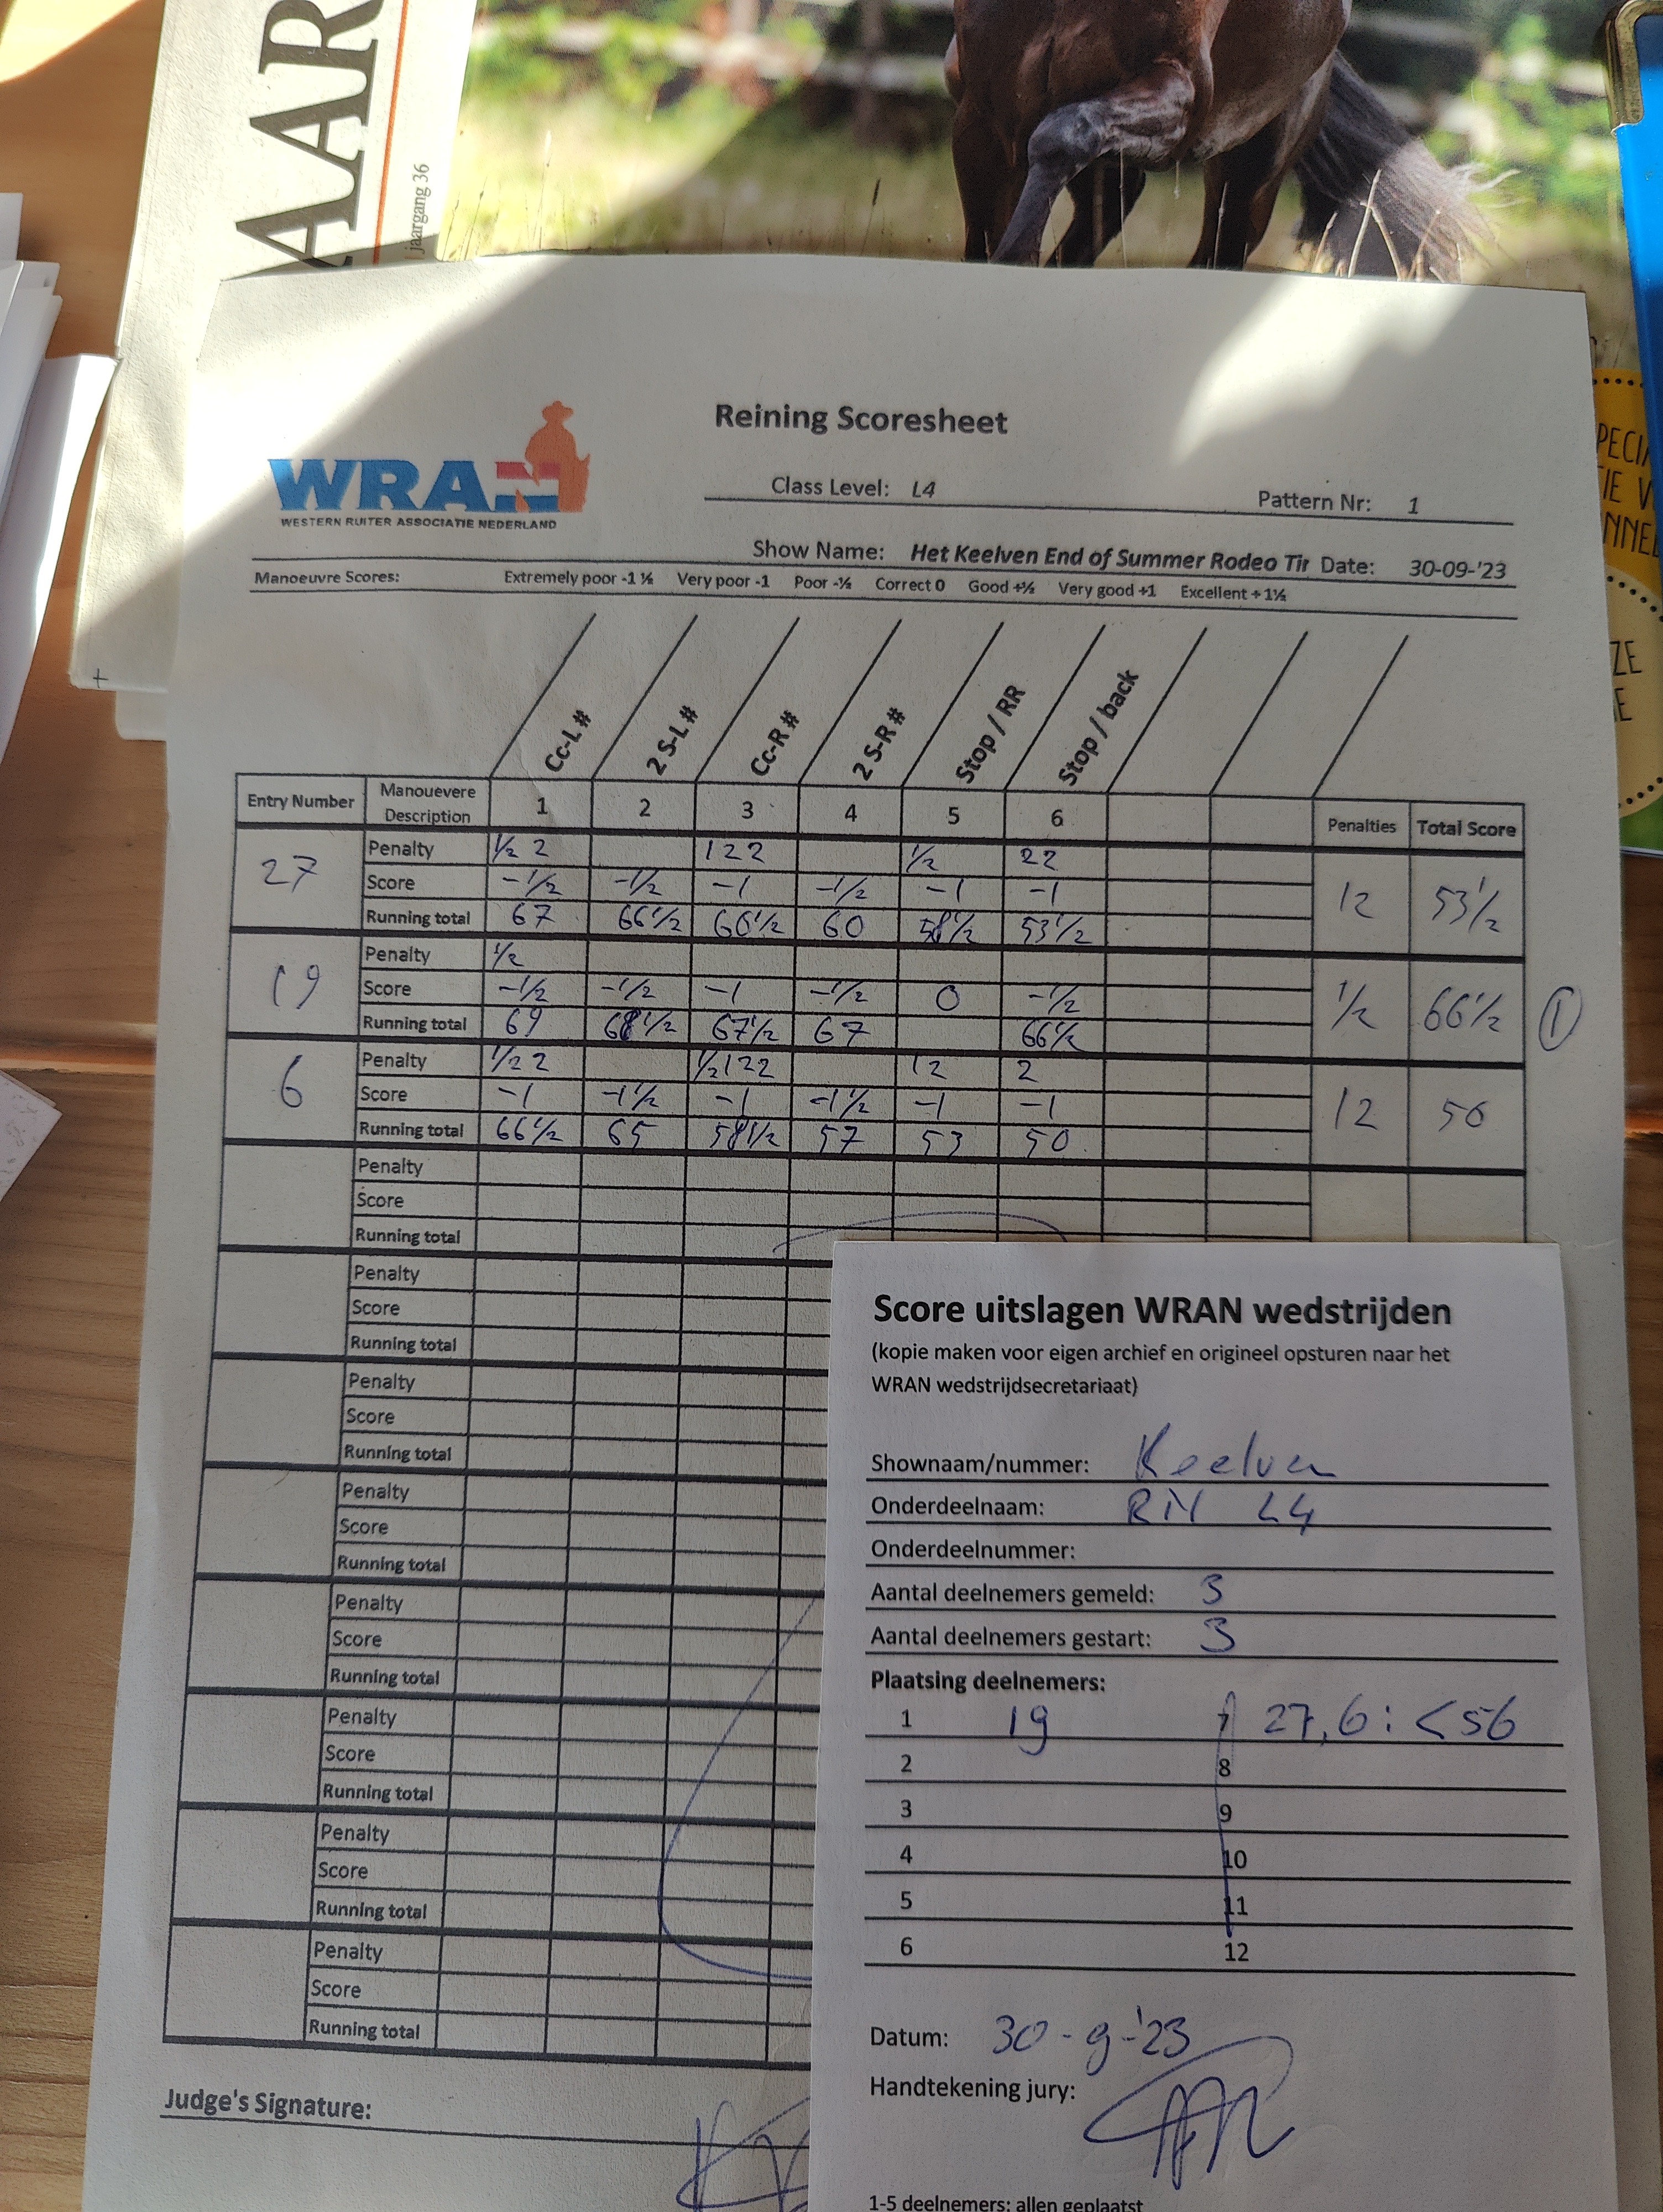 AAR
jaargang 36
PECI
IE V
NNEL
ZE
E
Reining Scoresheet
WRAN
WESTERN RUITER ASSOCIATIE NEDERLAND
Class Level: L4 Pattern Nr: 1
Show Name: Het Keelven End of Summer Rodeo Tir Date: 30-09-'23
Manoeuvre Scores: Extremely poor -1 ½ Very poor -1 Poor -½ Correct 0 Good +½ Very good +1 Excellent + 1½
Cc-L # 2 S-L # Cc-R # 2 S-R # Stop / RR Stop / back
Entry Number Manouevere Description 1 2 3 4 5 6 Penalties Total Score
27 Penalty ½ 2 122 ½ 22 12 53½
Score -½ -½ -1 -½ -1 -1
Running total 67 66½ 60½ 60 58½ 53½
19 Penalty ½ ½ 66½ 1
Score -½ -½ -1 -½ 0 -½
Running total 69 68½ 67½ 67 66½
6 Penalty ½ 2 ½122 12 2 12 50
Score -1 -1½ -1 -1½ -1 -1
Running total 66½ 65 58½ 57 53 50
Penalty
Score
Running total
Penalty
Score
Running total
Penalty
Score
Running total
Penalty
Score
Running total
Penalty
Score
Running total
Penalty
Score
Running total
Penalty
Score
Running total
Penalty
Score
Running total
Judge's Signature:
Score uitslagen WRAN wedstrijden
(kopie maken voor eigen archief en origineel opsturen naar het
WRAN wedstrijdsecretariaat)
Shownaam/nummer: Keelven
Onderdeelnaam: RN L4
Onderdeelnummer:
Aantal deelnemers gemeld: 3
Aantal deelnemers gestart: 3
Plaatsing deelnemers:
1 19 7 27,6: <56
2 8
3 9
4 10
5 11
6 12
Datum: 30-9-'23
Handtekening jury:
1-5 deelnemers: allen geplaatst